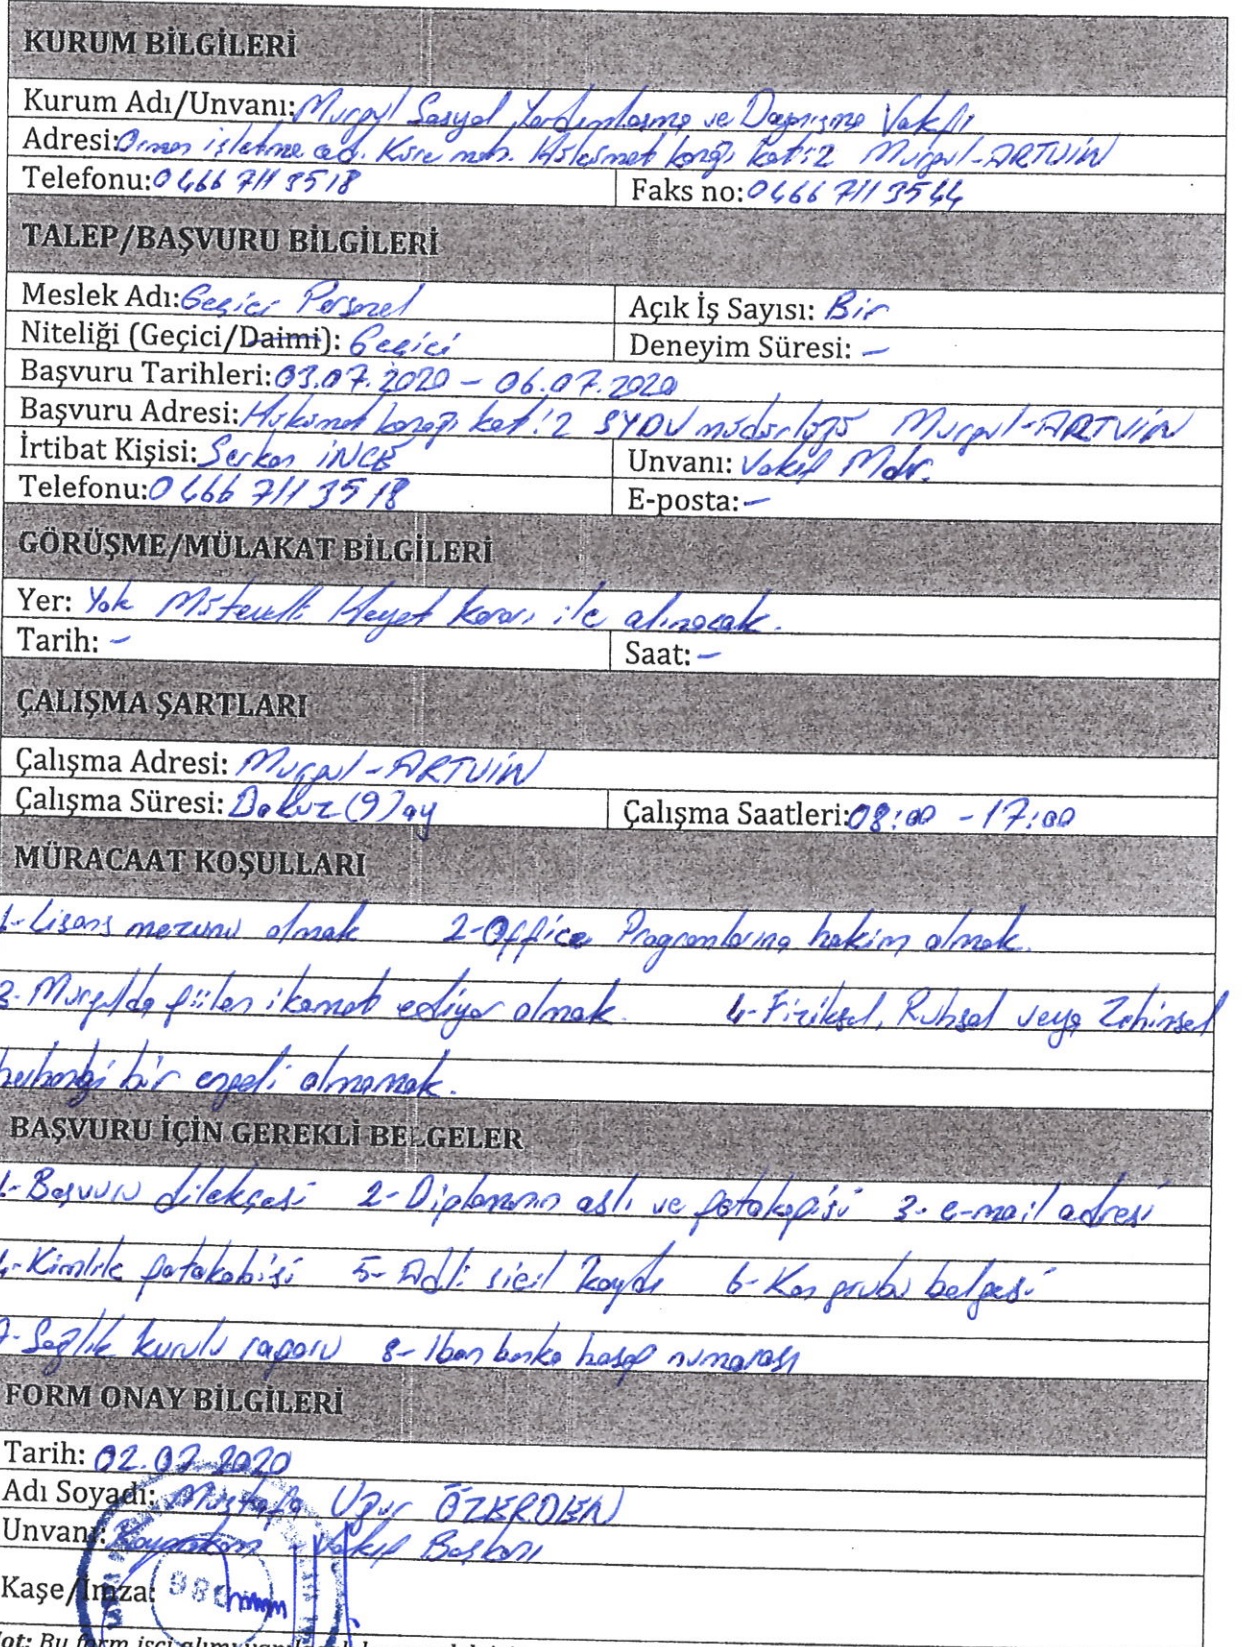 KURUM BİLGİLERİ
Kurum Adı/Unvanı: Murgul Sosyal Yardımlaşma ve Dayanışma Vakfı
Adresi: Orman işletme cad. Küre mah. Hükümet konağı kat:2 Murgul-ARTVİN
Telefonu: 0466 711 3518 Faks no: 0466 711 3544
TALEP/BAŞVURU BİLGİLERİ
Meslek Adı: Geçici Personel Açık İş Sayısı: Bir
Niteliği (Geçici/Daimi): Geçici Deneyim Süresi: –
Başvuru Tarihleri: 03.07.2020 – 06.07.2020
Başvuru Adresi: Hükümet konağı kat:2 SYDV müdürlüğü Murgul-ARTVİN
İrtibat Kişisi: Serkan İNCE Unvanı: Vakıf Mdr.
Telefonu: 0466 711 3518 E-posta: –
GÖRÜŞME/MÜLAKAT BİLGİLERİ
Yer: Yok Mütevelli Heyet kararı ile alınacak.
Tarih: – Saat: –
ÇALIŞMA ŞARTLARI
Çalışma Adresi: Murgul-ARTVİN
Çalışma Süresi: Dokuz (9) ay Çalışma Saatleri: 08:00 - 17:00
MÜRACAAT KOŞULLARI
1- Lisans mezunu olmak 2- Office Programlarına hakim olmak.
3- Murgulda fiilen ikamet ediyor olmak. 4- Fiziksel, Ruhsal veya Zihinsel
herhangi bir engeli olmamak.
BAŞVURU İÇİN GEREKLİ BELGELER
1- Başvuru dilekçesi 2- Diplomanın aslı ve fotokopisi 3- e-mail adresi
4- Kimlik fotokobisi 5- Adli sicil kaydı 6- Kan grubu belgesi
7- Sağlık kurulu raporu 8- Iban banka hesap numarası
FORM ONAY BİLGİLERİ
Tarih: 02.07.2020
Adı Soyadı: Mustafa Uğur ÖZERDEN
Unvanı: Kaymakam Vakıf Başkanı
Kaşe/İmza:
Not: Bu form işçi